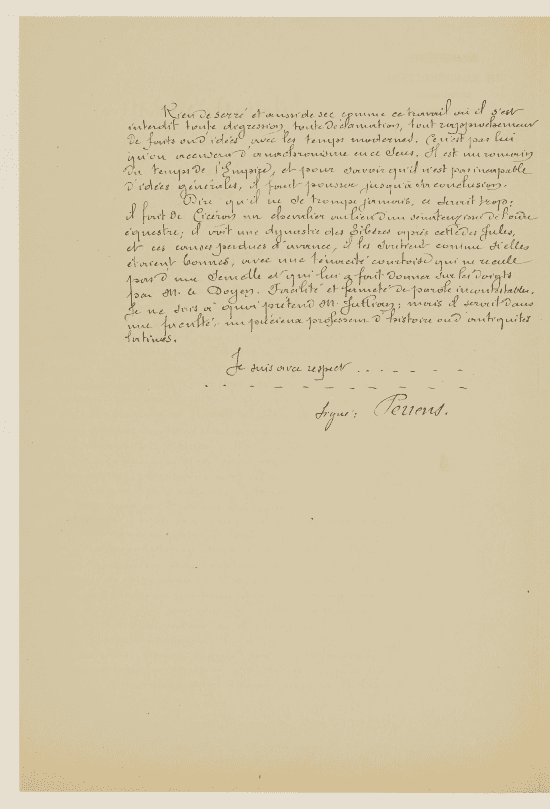 Rien de serré et aussi de sec comme ce travail où il s'est
interdit toute digression, toute déclamation, tout rapprochement
de faits ou d'idées avec les temps modernes. Ce n'est pas lui
qu'on accusera d'anachronisme en ce sens. Il est un romain
du temps de l'Empire, et pour savoir qu'il n'est pas incapable
d'idées générales, il faut pousser jusqu'à sa conclusion.
Dire qu'il ne se trompe jamais, ce serait trop.
il fait de Cicéron un chevalier au lieu d'un sénateur, issu de l'ordre
équestre; il voit une dynastie des Tibères après celle des Jules,
et ces causes perdues d'avance, il les soutient comme si elles
étaient bonnes, avec une ténacité courtoise qui ne recule
pas d'une semelle et qui lui a fait donner sur les doigts
par M. le Doyen. Facilité et fermeté de parole incontestables.
Je ne sais à quoi prétend M. Jullian; mais il serait dans
une faculté un précieux professeur d'histoire ou d'antiquités
latines.
Je suis avec respect . . - . - -
- - - - - - - - - - -
Signé: Perrens.